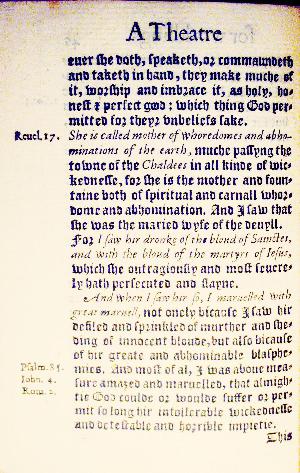 A Theatre
euer she doth, speaketh, or commaundeth
and taketh in hand, they make muche of
it, worship and imbrace it, as holy, ho-
nest & perfect god: which thing God per-
mitted for they2 vnbeliefs sake.
Reuel.17. She is called mother of whoredomes and abho-
minations of the earth, muche passyng the
towne of the Chaldees in all kinde of wic-
kednesse, for she is the mother and foun-
taine both of spiritual and carnall whor-
dome and abhomination. And I saw that
she was the maried wyfe of the deuyll.
For I saw hir dronke of the bloud of Sainctes,
and with the bloud of the martyrs of Iesus,
which she outragiously and most seuere-
ly hath persecuted and slayne.
And when I saw hir so, I maruelled with
great maruell, not onely bicause I saw hir
defiled and sprinkled of murther and she-
ding of innocent bloude, but also bicause
of hir greate and abhominable blasphe-
Psalm.85. mies. And most of al, I was aboue mea-
Iohn. 4. sure amazed and maruelled, that almigh-
Rom. 2. tie God coulde or woulde suffer or per-
mit so long hir intollerable wickednesse
and detestable and horrible impietie.
This